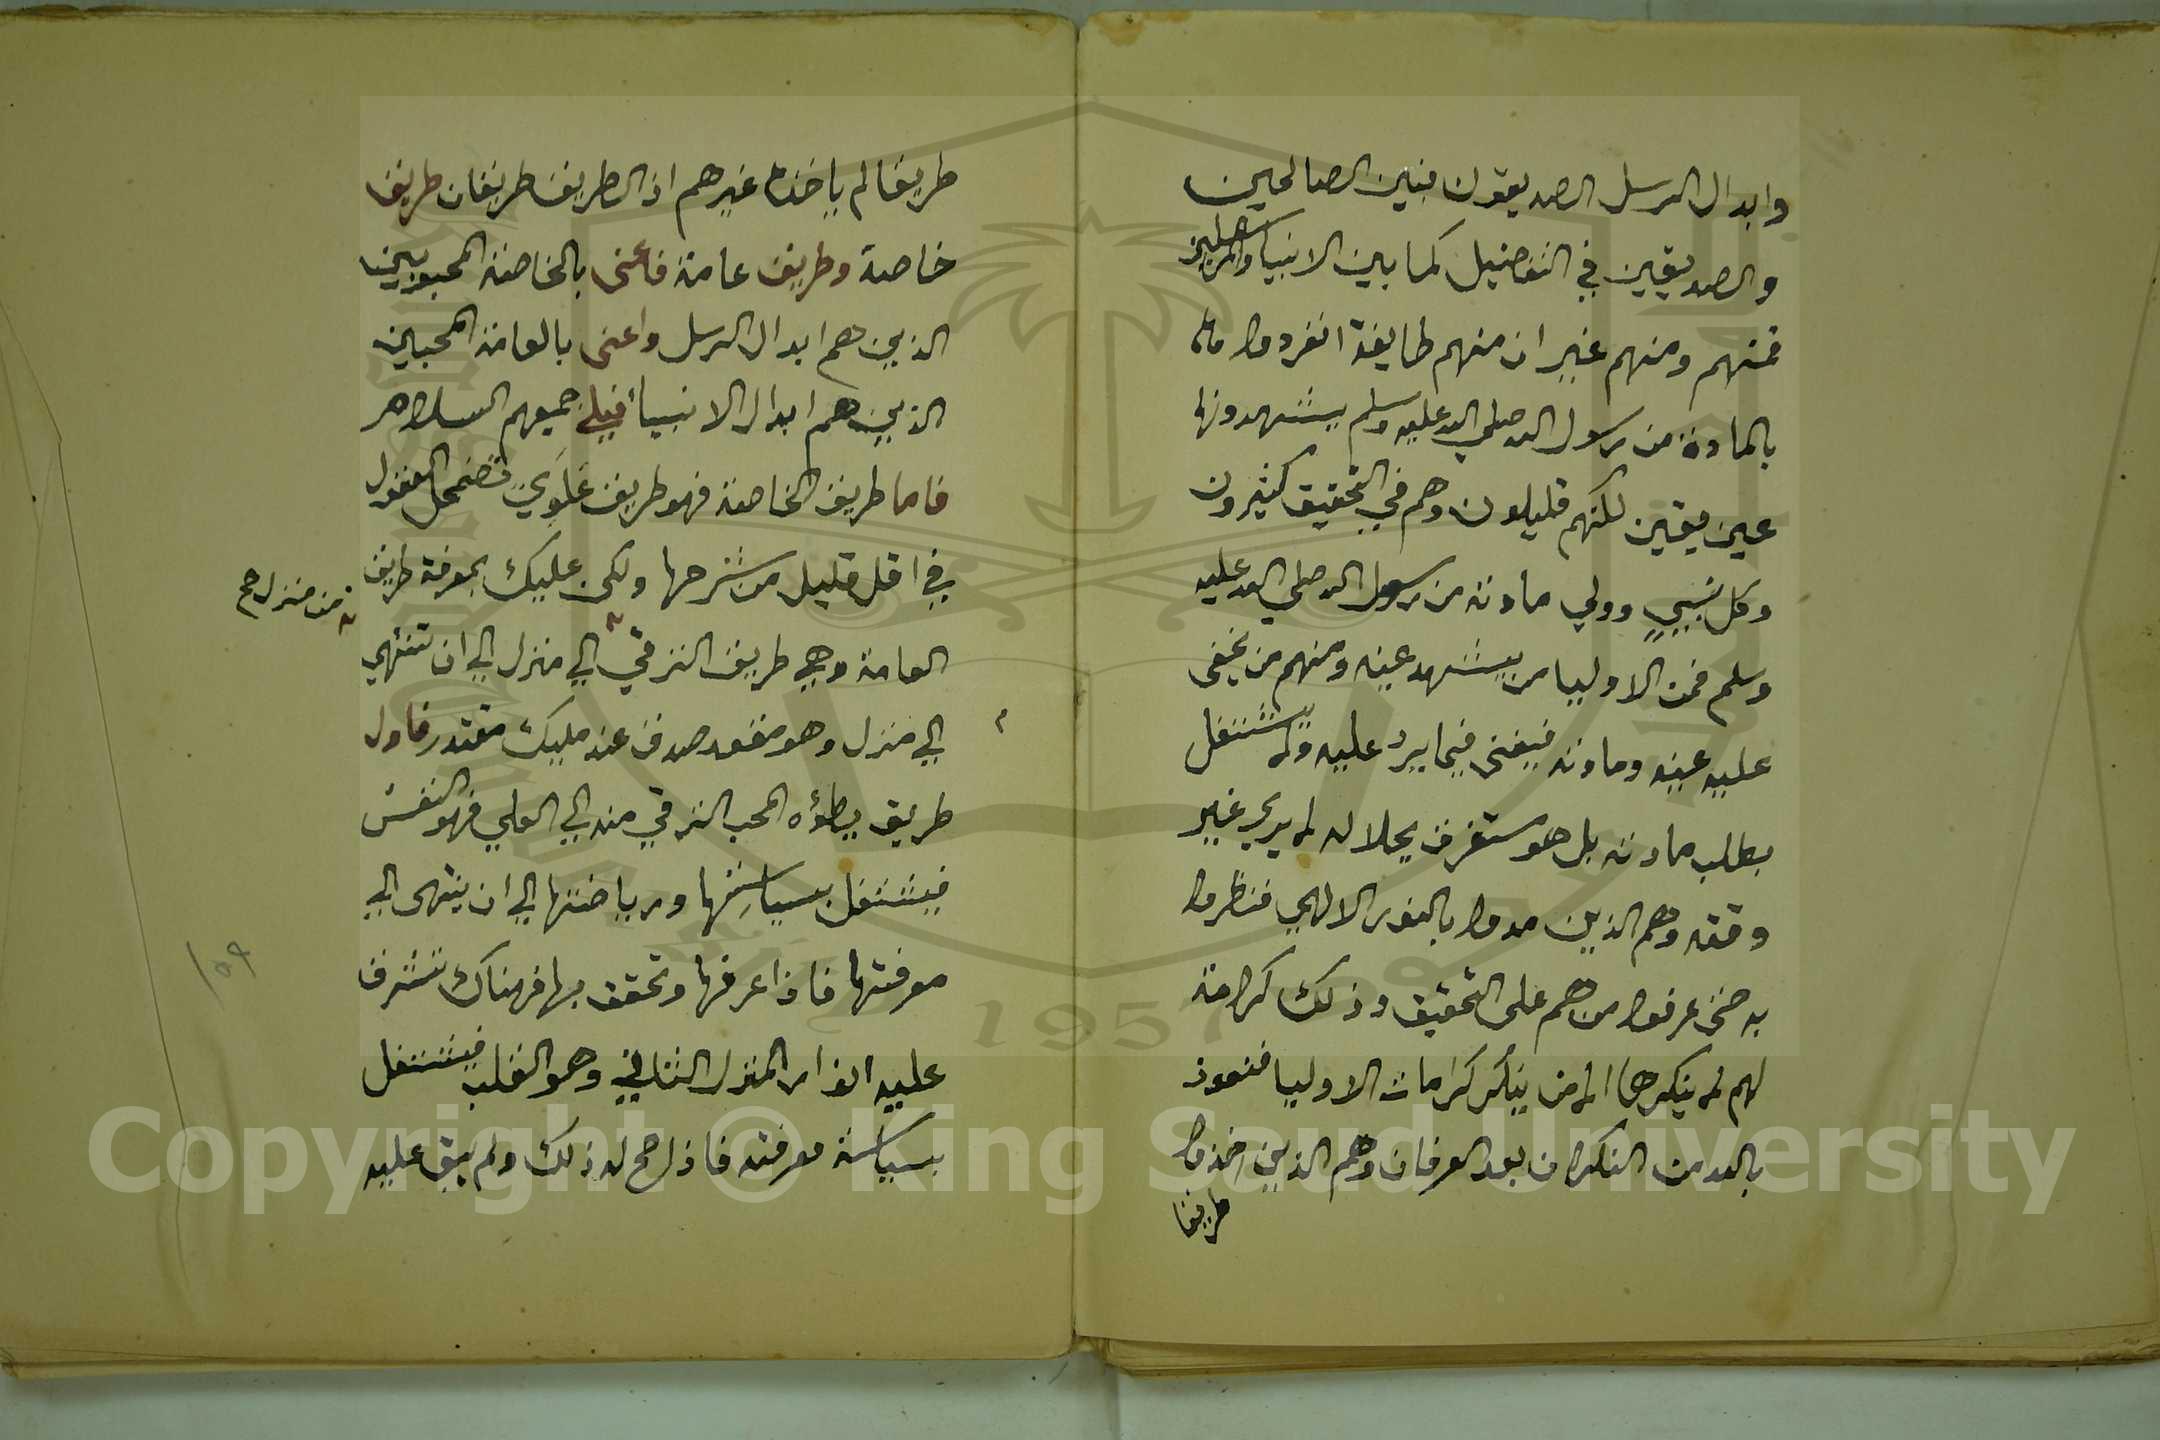 وابدال الرسل الصديقون فبين الصالحين
والصديقين في التفضيل كما بين الانبيا والمرسلين
فمنهم ومنهم غير ان منهم طايفة انفردوا
بالمادة من رسول الله صلى الله عليه وسلم يشهدونها
عين يقين لكنهم قليلون وهم في التحقيق كثيرون
وكل نبيٍ وولي مادته من رسول الله صلى الله عليه
وسلم فمن الاوليا من يشهد عينه ومنهم من يخفى
عليه عينه ومادته فيفنى فيما يرد عليه ولا يشتغل
بطلب مادته بل هو مستغرق بحاله لا يرى غير
وقته وهم الذين مدوا بالنور الالهي فنظروا
به حتى عرفوا من هم على التحقيق وذلك كرامة
لهم لا ينكرها الا من ينكر كرامات الاوليا فنعوذ
بالله من النكران بعد العرفان وهم الذين اخذوا
طريقا
طريقا لم ياخذه غيرهم اذ الطريق طريقان طريق
خاصة وطريق عامة فاعنى بالخاصة المحبوبين
الذين هم ابدال الرسل واعنى بالعامة المحبين
الذين هم ابدال الانبيا فعلى جميعهم السلام
فاما طريق الخاصة فهو طريق عَلَوِيٌ تضمحل العقول
في اقل قليل من شرحها ولكن عليك بمعرفة طريق
العامة وهي طريق الترقي الى منزل الى ان تنتهي
من منزل صح
الى منزل وهو مقعد صدق عند مليك مقتدر فاول
طريق يطؤه المحب الترقي منه الى العلي فهو النفس
فيشتغل بسياستها ورياضتها الى ان ينتهى الى
معرفتها فاذا عرفها وتحقق بها فهناك تشرق
عليه انوار المنزل الثاني وهو القلب فيشتغل
بسياسة معرفته فاذا صح له ذلك ولم يبق عليه
١٥٩
1957
Copyright © King Saud University